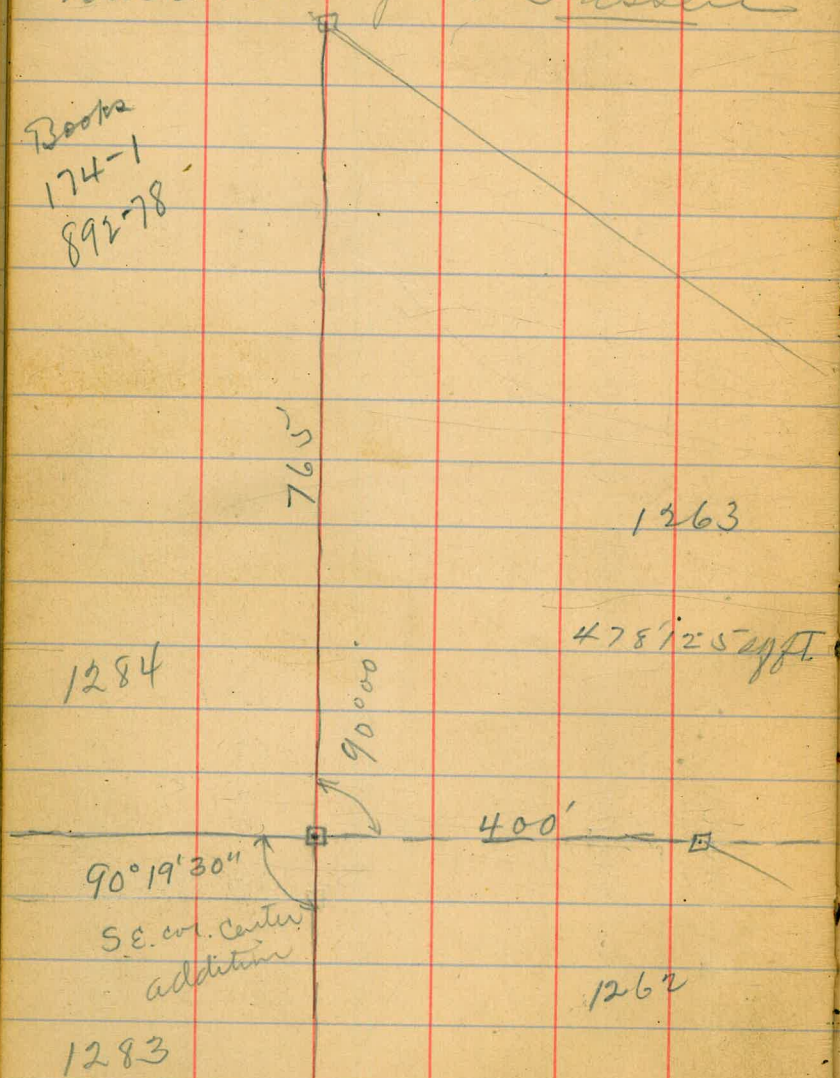 Books
174-1
892-78
765'
1263
478125 sq ft
1284
90°00'
400'
90°19'30"
S.E. cor. Center
addition
1262
1283